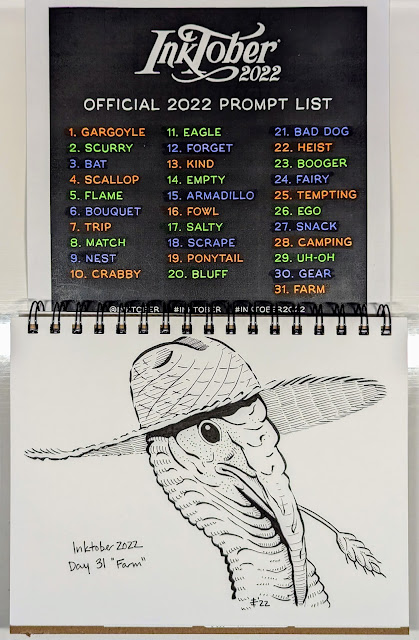 InkTober
2022
OFFICIAL 2022 PROMPT LIST
1. GARGOYLE
2. SCURRY
3. BAT
4. SCALLOP
5. FLAME
6. BOUQUET
7. TRIP
8. MATCH
9. NEST
10. CRABBY
11. EAGLE
12. FORGET
13. KIND
14. EMPTY
15. ARMADILLO
16. FOWL
17. SALTY
18. SCRAPE
19. PONYTAIL
20. BLUFF
21. BAD DOG
22. HEIST
23. BOOGER
24. FAIRY
25. TEMPTING
26. EGO
27. SNACK
28. CAMPING
29. UH-OH
30. GEAR
31. FARM
@INKTOBER #INKTOBER #INKTOBER2022
Inktober 2022
Day 31 "Farm"
'22